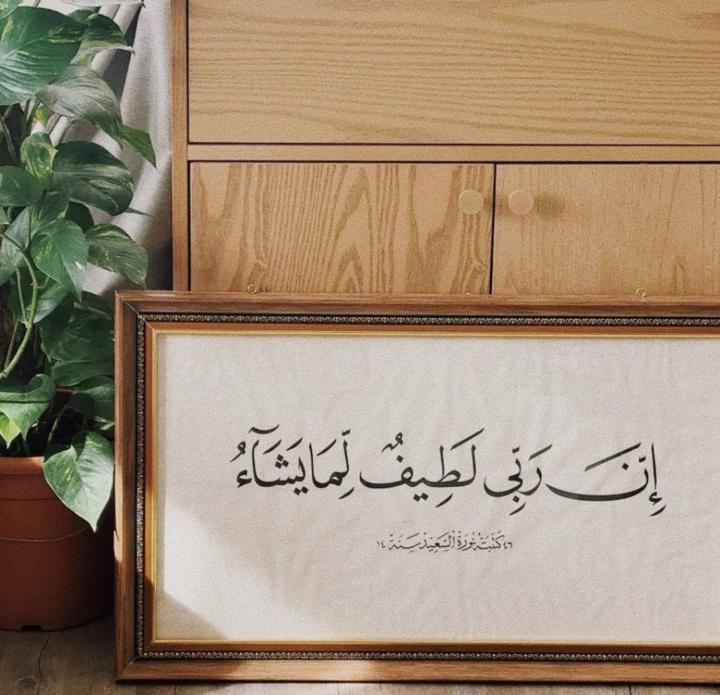 إِنَّ رَبِّي لَطِيفٌ لِّمَا يَشَآءُ
كتبته نورة السعيد سنة ١٤